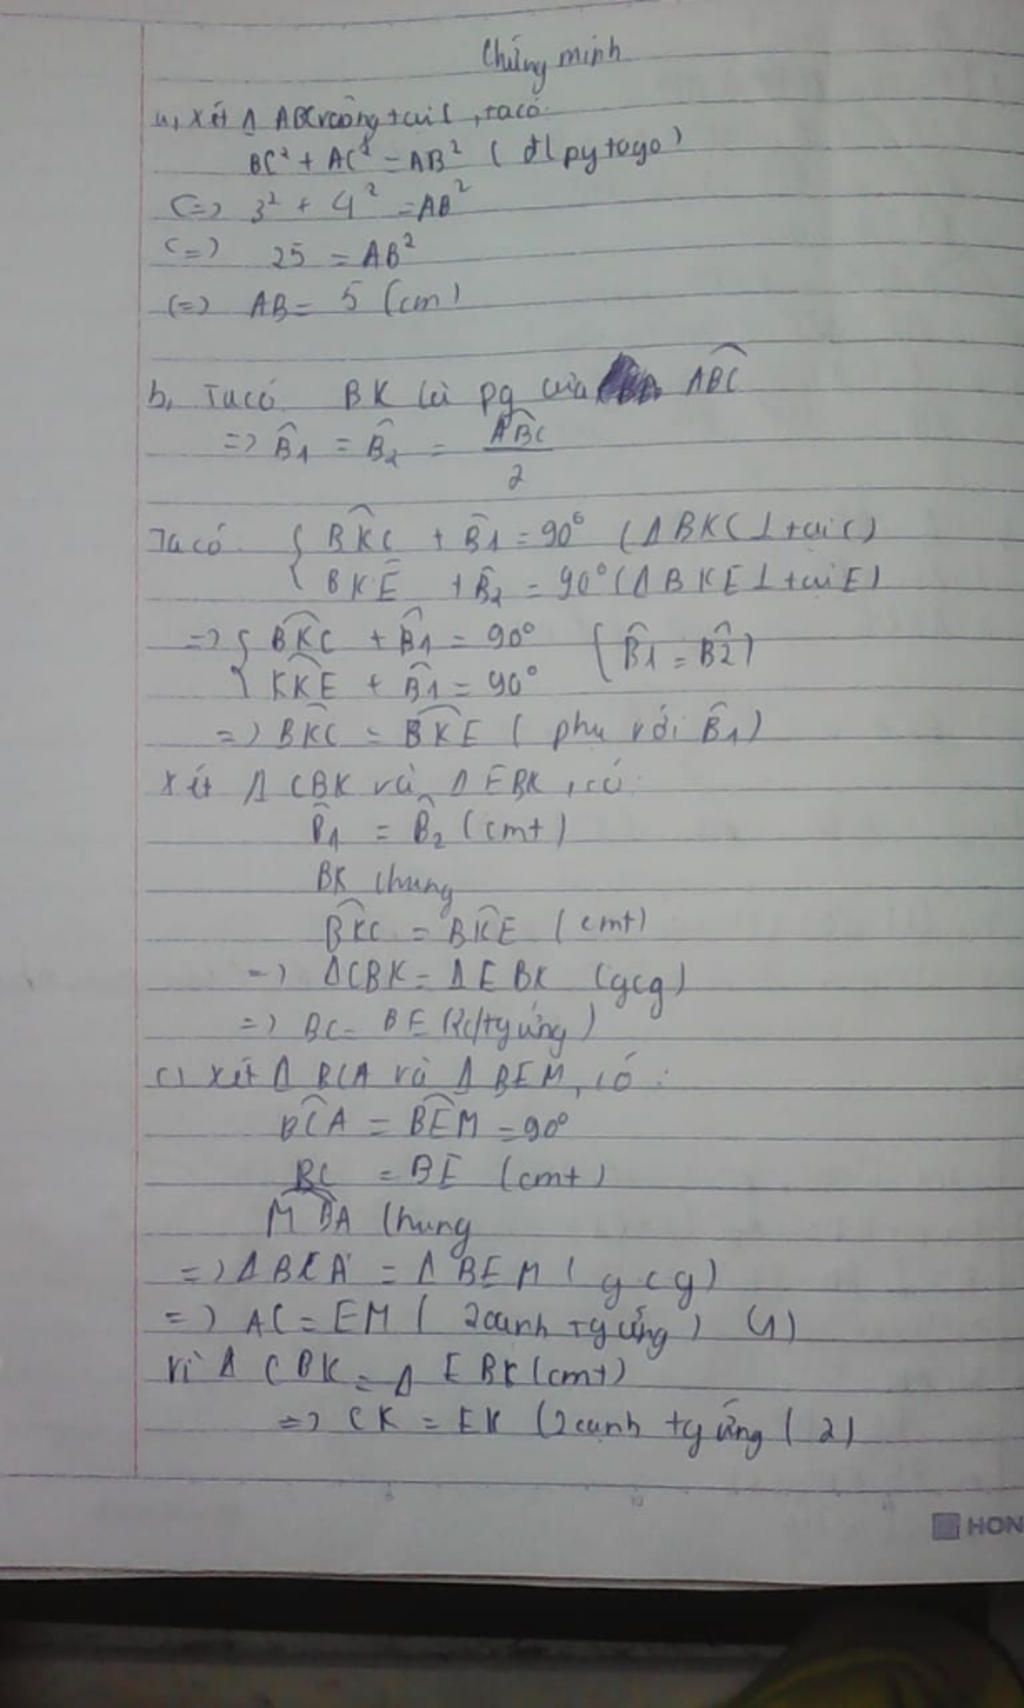 Chứng minh
a, Xét Δ ABC vuông tại C, ta có:
BC² + AC² = AB² ( đl pytago)
(=) 3² + 4² = AB²
(=) 25 = AB²
(=) AB = 5 (cm)
b, Ta có BK là pg của ABC
=) B1 = B2 = ABC
2
Ta có: { BKC + B1 = 90° (Δ BKC ⊥ tại C)
{ BKE + B2 = 90° (Δ BKE ⊥ tại E)
=) { BKC + B1 = 90° (B1 = B2)
{ KKE + B1 = 90°
=) BKC = BKE ( phụ với B1)
Xét Δ CBK và Δ EBK, có:
B1 = B2 (cmt)
BK chung
BKC = BKE (cmt)
=) ΔCBK = Δ EBK (gcg)
=) BC = BE (2c/tg ứng)
c) Xét Δ BCA và Δ BEM, có:
BCA = BEM = 90°
BC = BE (cmt)
MBA chung
=) ΔBCA = Δ BEM ( gcg)
=) AC = EM ( 2 cạnh tg ứng) (1)
Vì Δ CBK = Δ EBK (cmt)
=) CK = EK (2 cạnh tg ứng (2)
HON